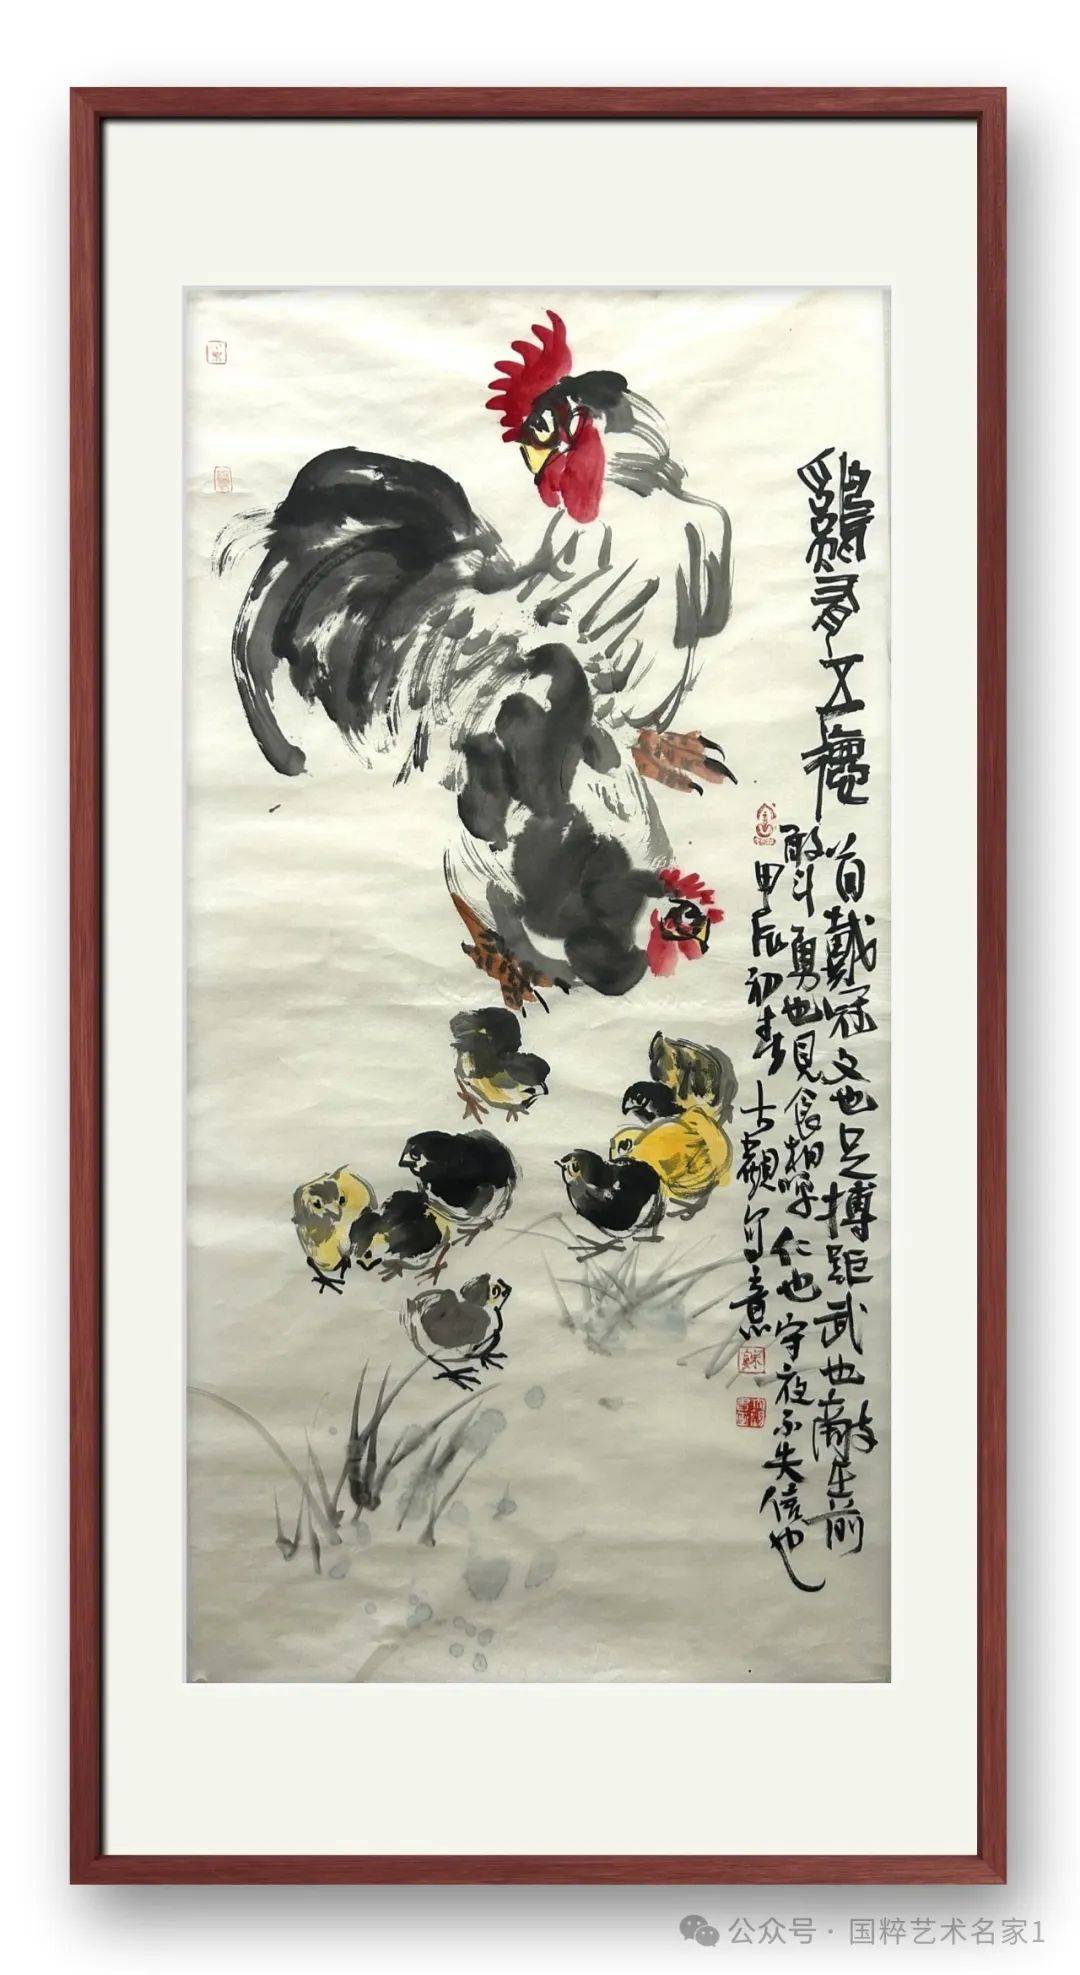 鷄有五德
首戴冠文也足搏距武也敵在前
敢斗勇也見食相呼仁也守夜不失信也
甲辰初春古顴写意
公众号·国粹艺术名家1